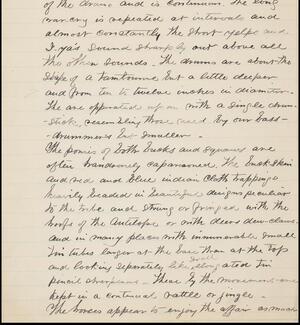 of the drums and is continuous. The long
war cry is repeated at intervals and
almost constantly the short yelps and
sound sharply out above all
the other sounds. The drums are about the
shape of a tambourine but a little deeper
and from ten to twelve inches in diameter.
The are operated up on with a single drum-
stick, resembling those used by our bass-
drummers but smaller.
The ponies of both bucks and squaws are
often handsomely caparisoned. The buckskin
and red and blue indian cloth trappings
heavily beaded in beautiful designs peculiar
to the tribe and strung or fringed with the
hoofs of the Antelope or with deers dew-claws
and in many places with innumerable small
tin tubes larger at the base than at the top
and looking seperately like small elongated tin
pencil sharpeners. These by the movement are
kept in a continual rattle or jingle.
The horses appear to enjoy the affair as much